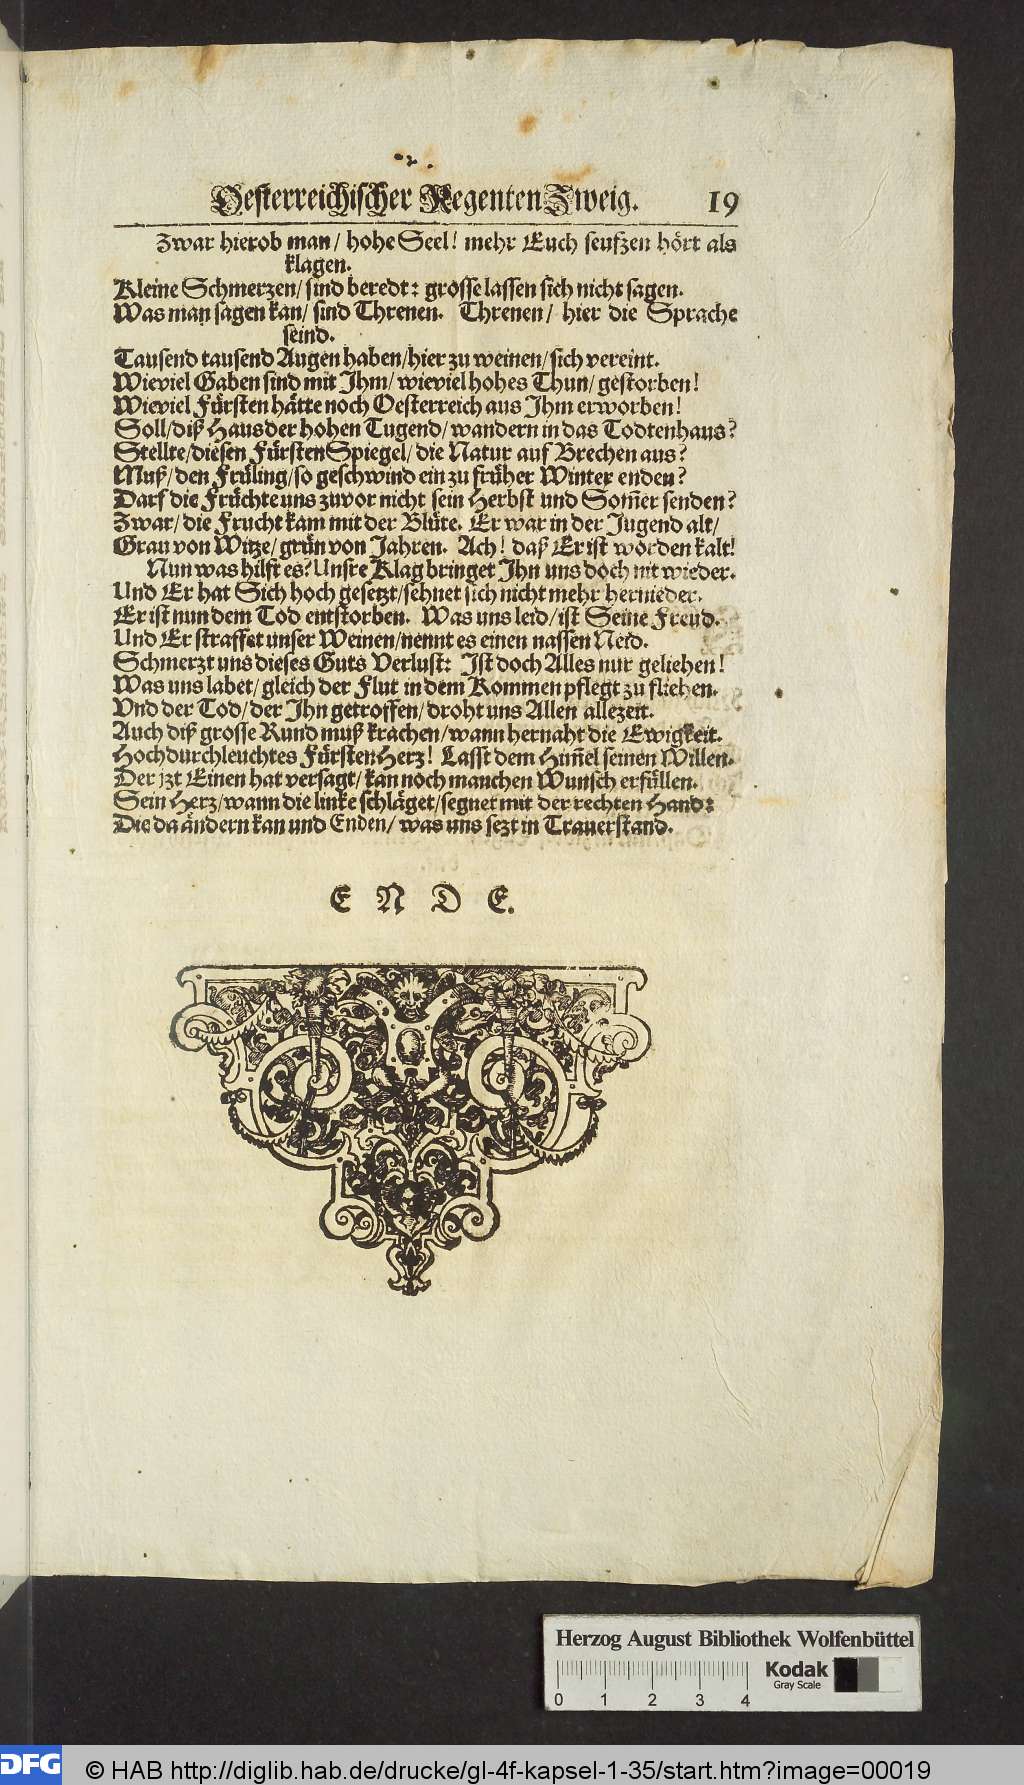 Oesterreichischer Regenten Zweig. 19
Zwar hierob man/ hohe Seel! mehr Euch seufzen hört als
klagen.
Kleine Schmerzen/ sind beredt: grosse lassen sich nicht sagen.
Was man sagen kan/ sind Threnen. Threnen/ hier die Sprache
seind.
Tausend tausend Augen haben/hier zu weinen/sich vereint.
Wieviel Gaben sind mit Ihm/ wieviel hohes Thun/ gestorben!
Wieviel Fürsten hätte noch Oesterreich aus Ihm erworben!
Soll/diß Haus der hohen Tugend/wandern in das Todtenhaus?
Stellte/diesen FürstenSpiegel/die Natur auf Brechen aus?
Muß/den Früling/so geschwind ein zu früher Winter enden?
Darf die Früchte uns zuvor nicht sein Herbst und Som̃er senden?
Zwar/die Frucht kam mit der Blüte. Er war in der Jugend alt/
Grau von Witze/grün von Jahren. Ach! daß Er ist worden kalt!
Nun was hilft es? Unsre Klag bringet Ihn uns doch nit wieder.
Und Er hat Sich hoch gesetzt/sehnet sich nicht mehr hernieder.
Er ist nun dem Tod entstorben. Was uns leid/ist Seine Freud.
Und Er straffet unser Weinen/nennt es einen nassen Neid.
Schmerzt uns dieses Guts Verlust: Ist doch Alles nur geliehen!
Was uns labet/gleich der Flut in dem Kommen pflegt zu fliehen.
Vnd der Tod/der Ihn getroffen/droht uns Allen allezeit.
Auch diß grosse Rund muß krachen/wann hernaht die Ewigkeit.
Hochdurchleuchtes FürstenHerz! Lasst dem Him̃el seinen Willen.
Der izt Einen hat versagt/kan noch manchen Wunsch erfüllen.
Sein Herz/wann die linke schläget/segnet mit der rechten Hand:
Die da ändern kan und Enden/ was uns sezt in Trauerstand.
E N D E.
Herzog August Bibliothek Wolfenbüttel
Kodak
Gray Scale
0 1 2 3 4
DFG © HAB http://diglib.hab.de/drucke/gl-4f-kapsel-1-35/start.htm?image=00019